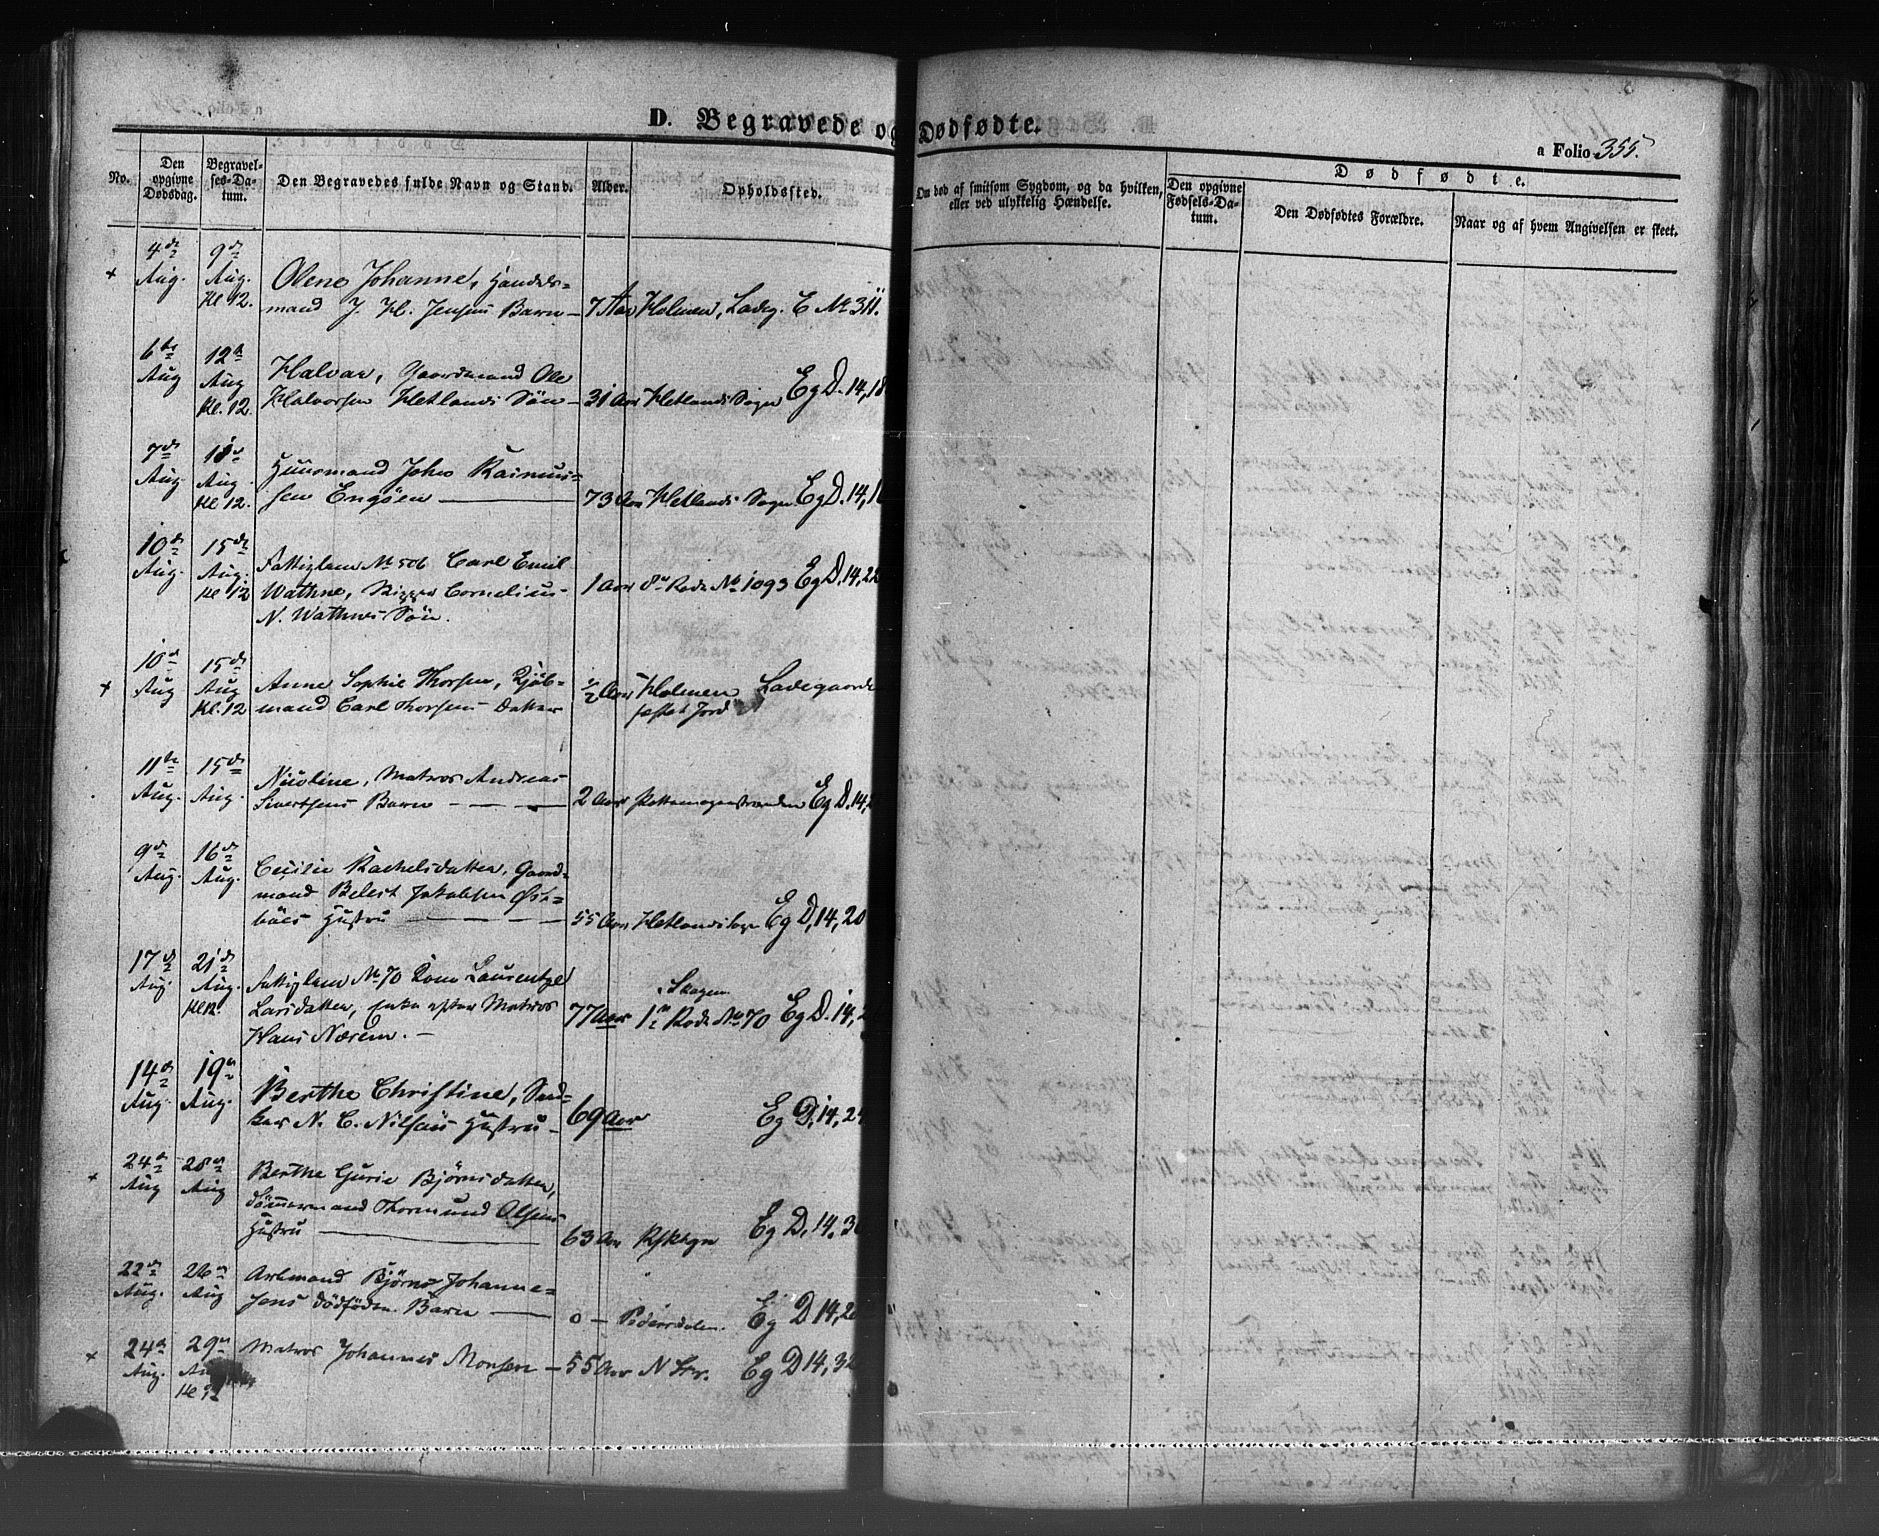 D. Begravede og Dødfødte.
a Folio 355.
No.
Den opgivne Dødsdag.
Begravel-
ses-Da-
tum.
Den Begravedes fulde Navn og Stand.
Alder.
Opholdssted.
Om død af smitsom Sygdom, og da hvilken,
eller ved ulykkelig Hændelse.
Dødfødte.
Den opgivne
Fødsels-Da-
tum.
Den Dødfødtes Forældre.
Naar og af hvem Angivelsen er skeet.
4de Aug. 9de Aug. Kl. 12. Olene Johanne, Handels=
mand J. H. Jensens Barn — 7 Aar Holmen, Ladeg. E No 311.
6te Aug 12te Aug Kl. 12. Halvar, Gaardmand Ole
Halvorsen Hetlands Søn — 31 Aar Hetlands Sogn Eg D. 14, 18
7de Aug. Aug. Kl 12. Huusmand John Rasmus=
sen Engøen — 73 Aar Hetlands Sogn Eg D. 14,
10de Aug. 15de Aug. Kl 12 Fattiglem No 506 Carl Emil
Wathne, Cornelius
N. Wathnes Søn. 1 Aar 8de Rode No 1093 Eg D, 14, 22
10de Aug 15de Aug Kl. 12 Anne Sophie Thorsen, Kjöb-
mand Carl Thorsens Datter ½ Aar Holmen Ladegaards
festet Jord
11te Aug. 15de Aug. Nicoline, Matros Andreas
Sivertsens Barn — — — 2 Aar Eg D. 14,
9de Aug. 16de Aug. Cecilie Rachelsdatter, Gaard-
mand Belest Jakobsen Øste=
böes Hustru — — — 55 Aar Hetlands Sogn Eg D, 14, 20
17de Aug. 21de Aug. Kl 12. Fattiglem No 70 Laurentze
Larsdatter, Enke efter Matros
Hans Næsem. — 77 Aar Skagen 1ste Rode No 70 Eg D. 14,
14de Aug. 19de Aug. Berthe Christine, Sned=
ker N. C. Nilsens Hustru — 69 Aar Eg D, 14, 24
24de Aug 28de Aug Berthe Gurie Bjørnsdatter,
Tömmermand Thormund Olsens
Hustru — 63 Aar Eg D, 14. 30
22de Aug. 26de Aug Arbmand Bjørn Johanne=
sens dödföden Barn — 0 — Pedersdalen. Eg D 14, 26
24de Aug. 29de Aug Kl 12 Matros Johannes Monsen — 55 Aar N Str. Eg D 14, 32